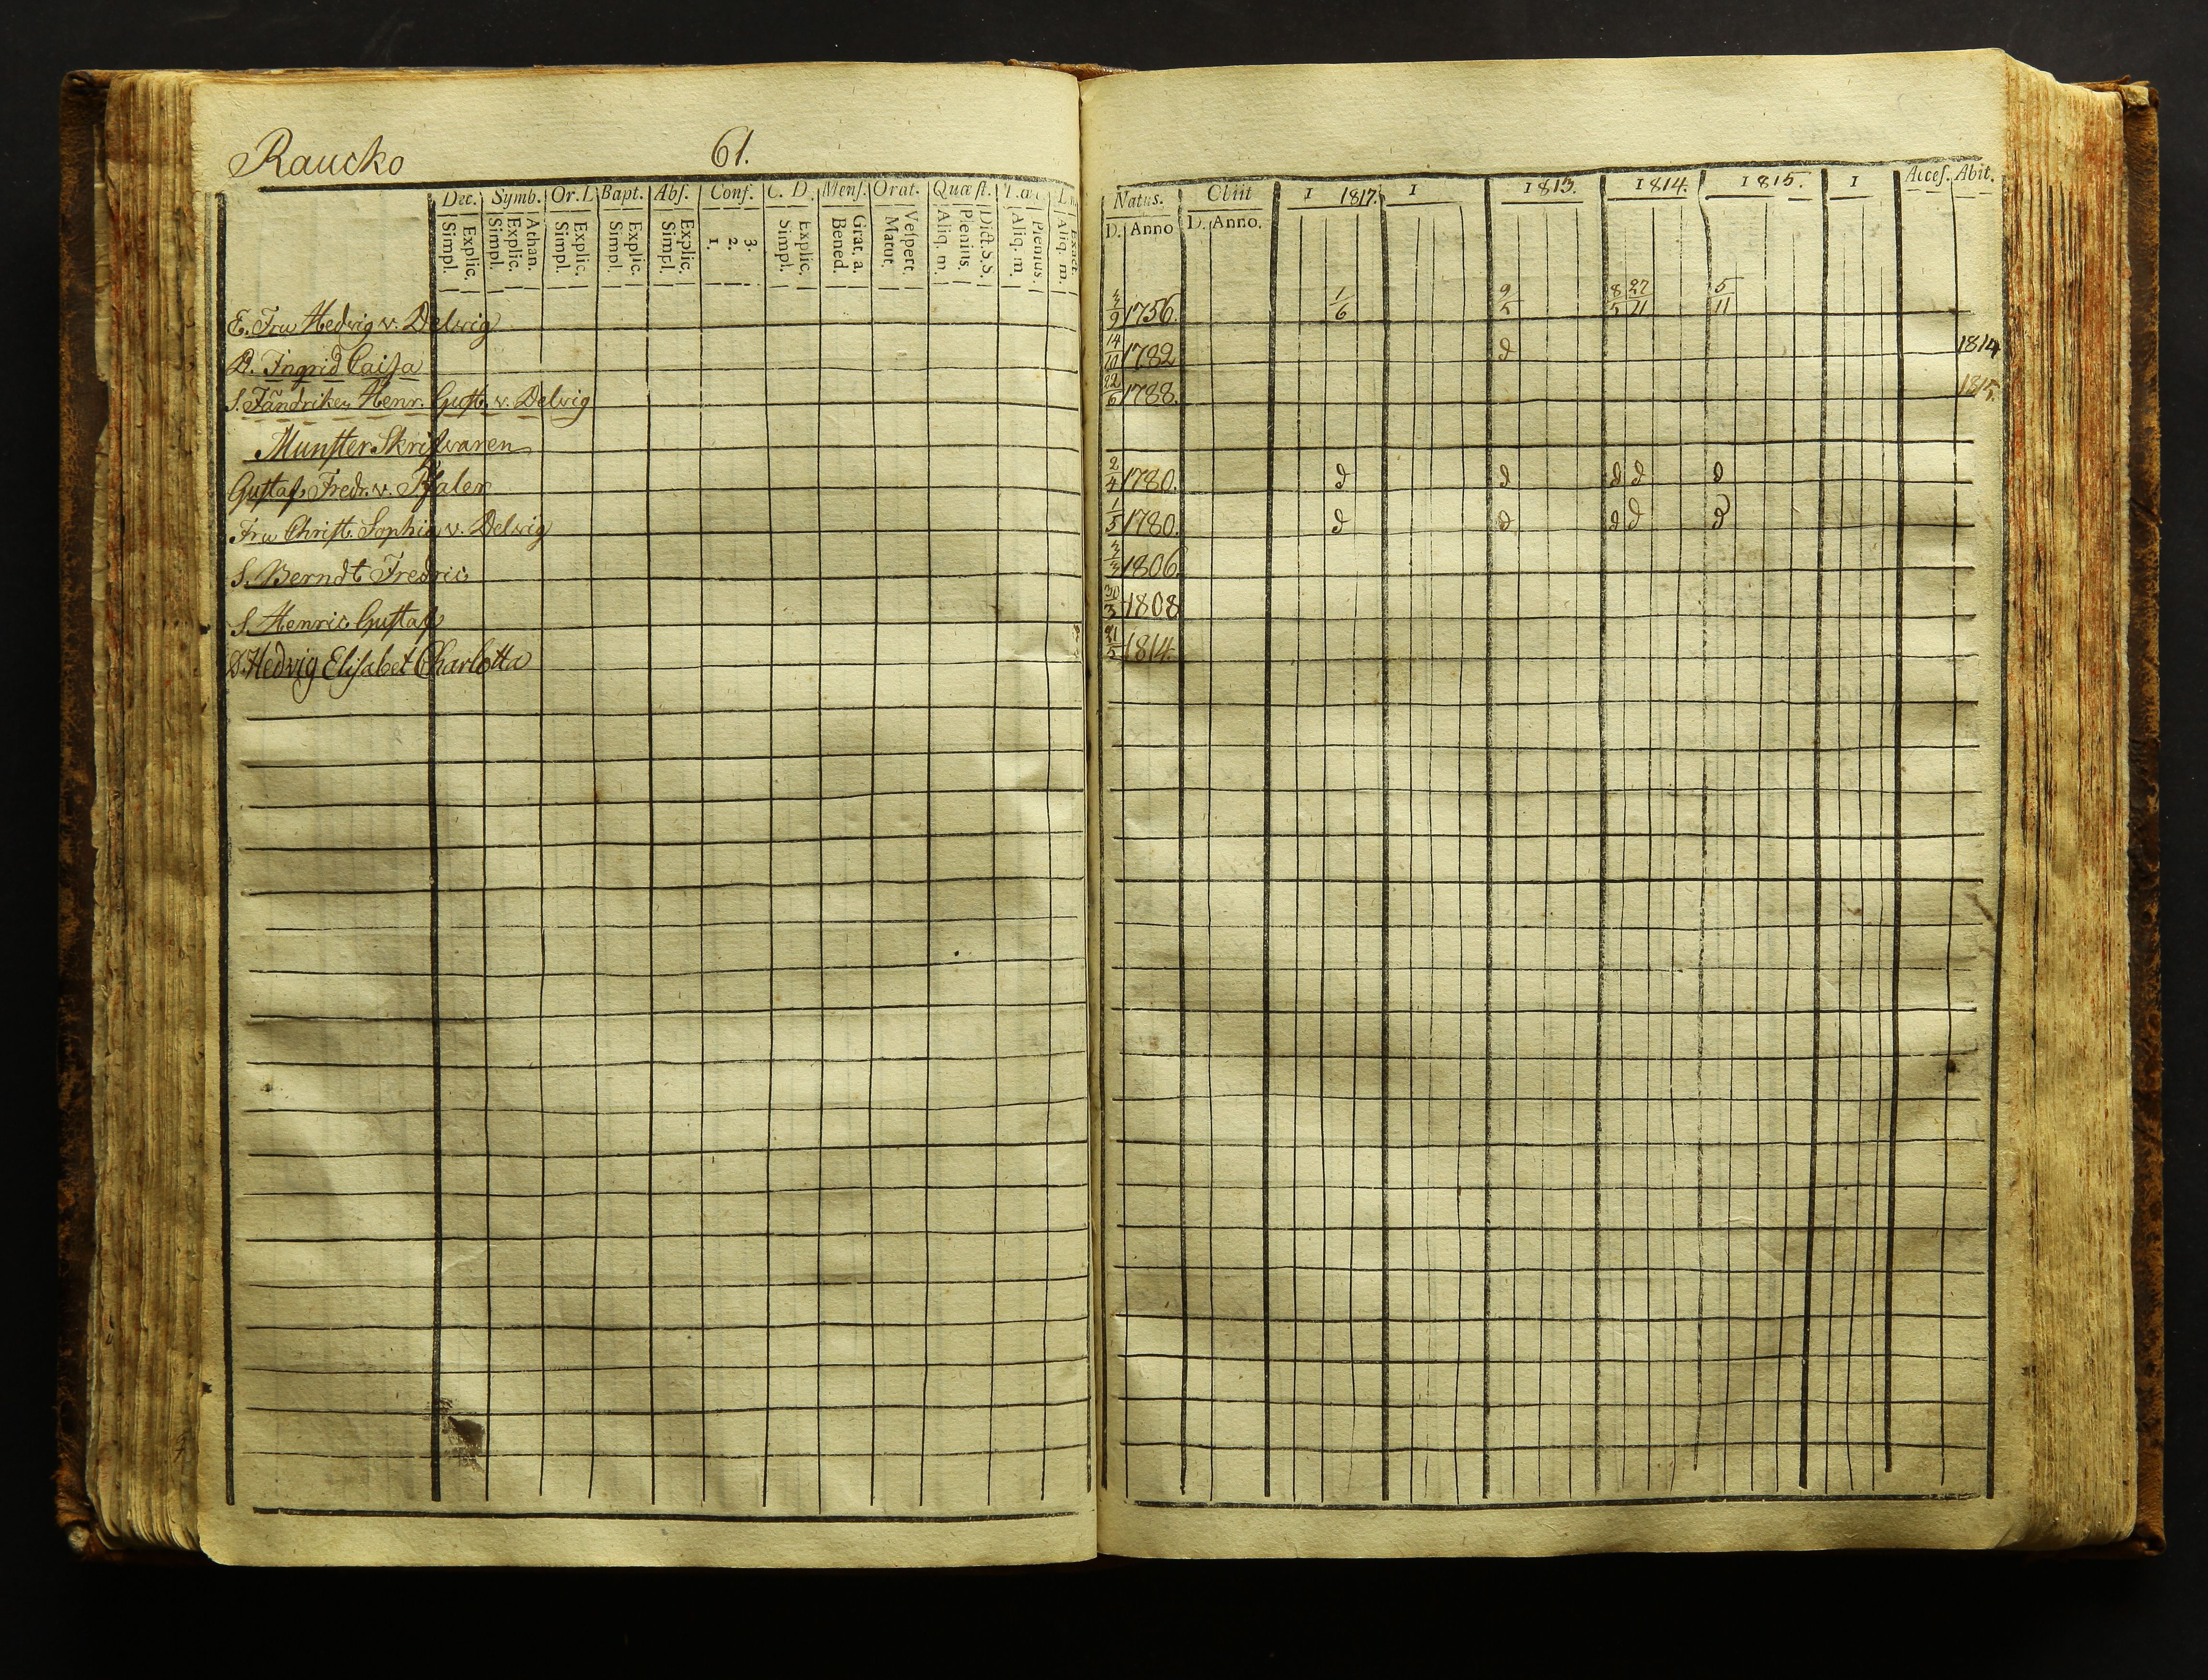 Raucko 61.
Dec. Symb. Or. D Bapt. Abſ. Conf. C. D. Menſ. Orat. Quæſt.
Explic. Simpl.
Athan. Explic. Simpl.
Explic. Simpl.
Explic. Simpl.
Explic. Simpl.
3. 2. 1.
Explic. Simpl.
Grat. a. Bened.
Veſpert. Matut.
Dict. S.S. Plenius. Aliq. m.
Plenius. Aliq. m.
Exact. Aliq. m.
Natus. Obiit 1 1817. 1 1813. 1814. 1815. 1 Acceſ. Abit.
D. Anno D. Anno.
E. Fru Hedvig v. Delvig 3/9 1756. 1/6 9/5 8/5 27/11 5/11
D. Ingrid Caiſa 14/10 1782 d 1814
S. Fändriken Henr. Guſt. v. Delvig 22/6 1788. 1815.
Munſter Skrifvaren
Guſtaf Fredr. v. Pfaler 2/4 1780. d d d d d
Fru Chriſt. Sophia v. Delvig 1/5 1780. d d d d d
S. Berndt Fredric 1806.
S. Henric Guſtaf 30/3 1808
D. Hedvig Eliſabet Charlotta 1814.